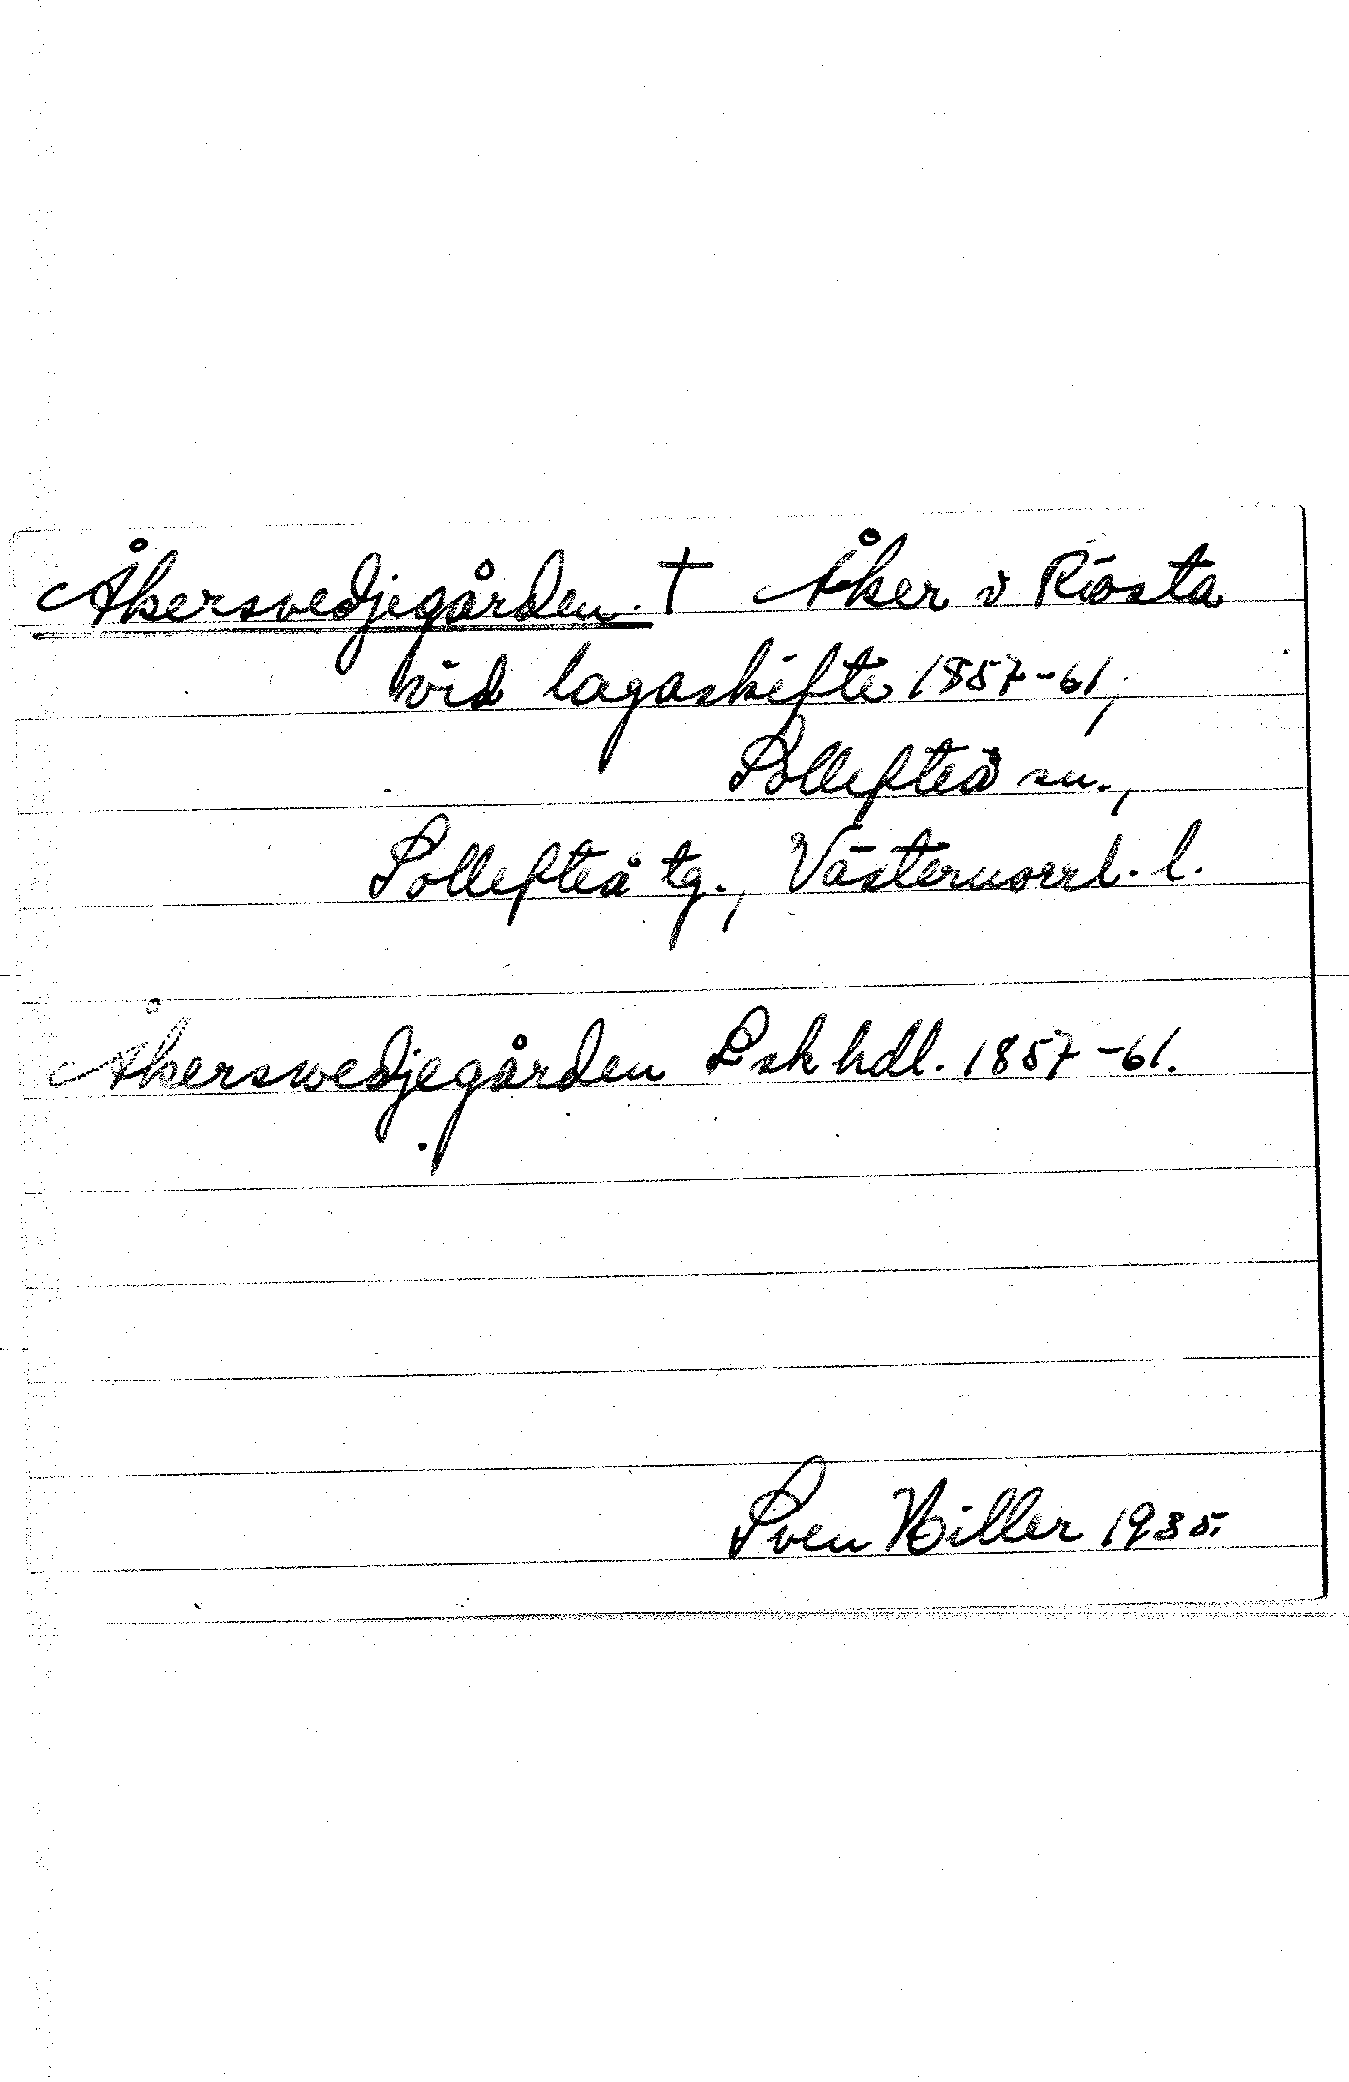 Åkersvedjegården. † Åker i Rösta
vid lagaskifte 1857-61,
Sollefteå sn.,
Sollefteå tg., Västernorrl. l.
Åkerswedjegården Lskhdl. 1857-61.
Sven Hiller 1935.